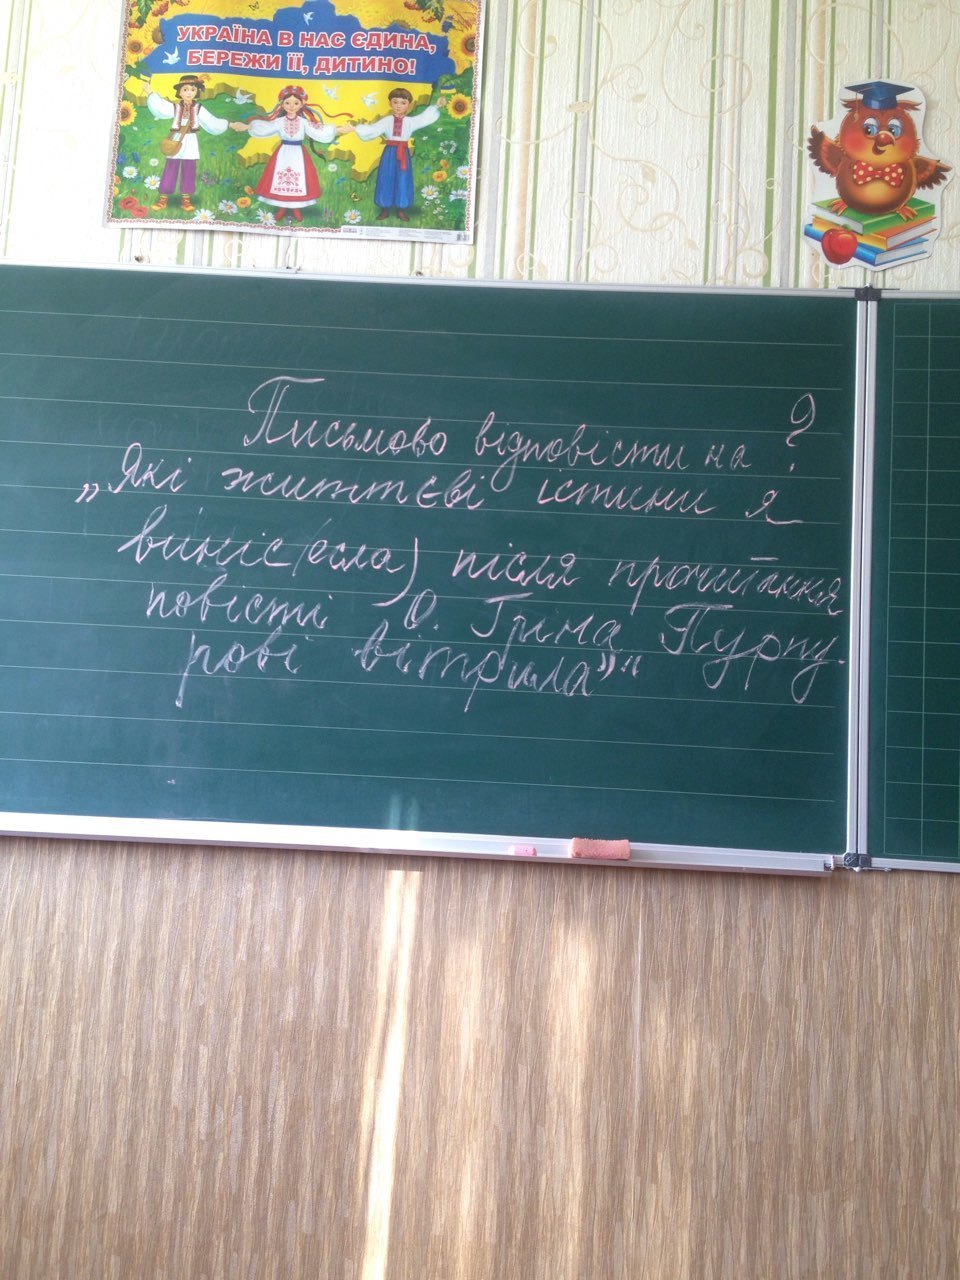 УКРАЇНА В НАС ЄДИНА,
БЕРЕЖИ ЇЇ, ДИТИНО!
Письмово відповісти на ?
„Які життєві істини я
виніс(есла) після прочитання
повісті О. Гріна Пурпу-
рові вітрила”“